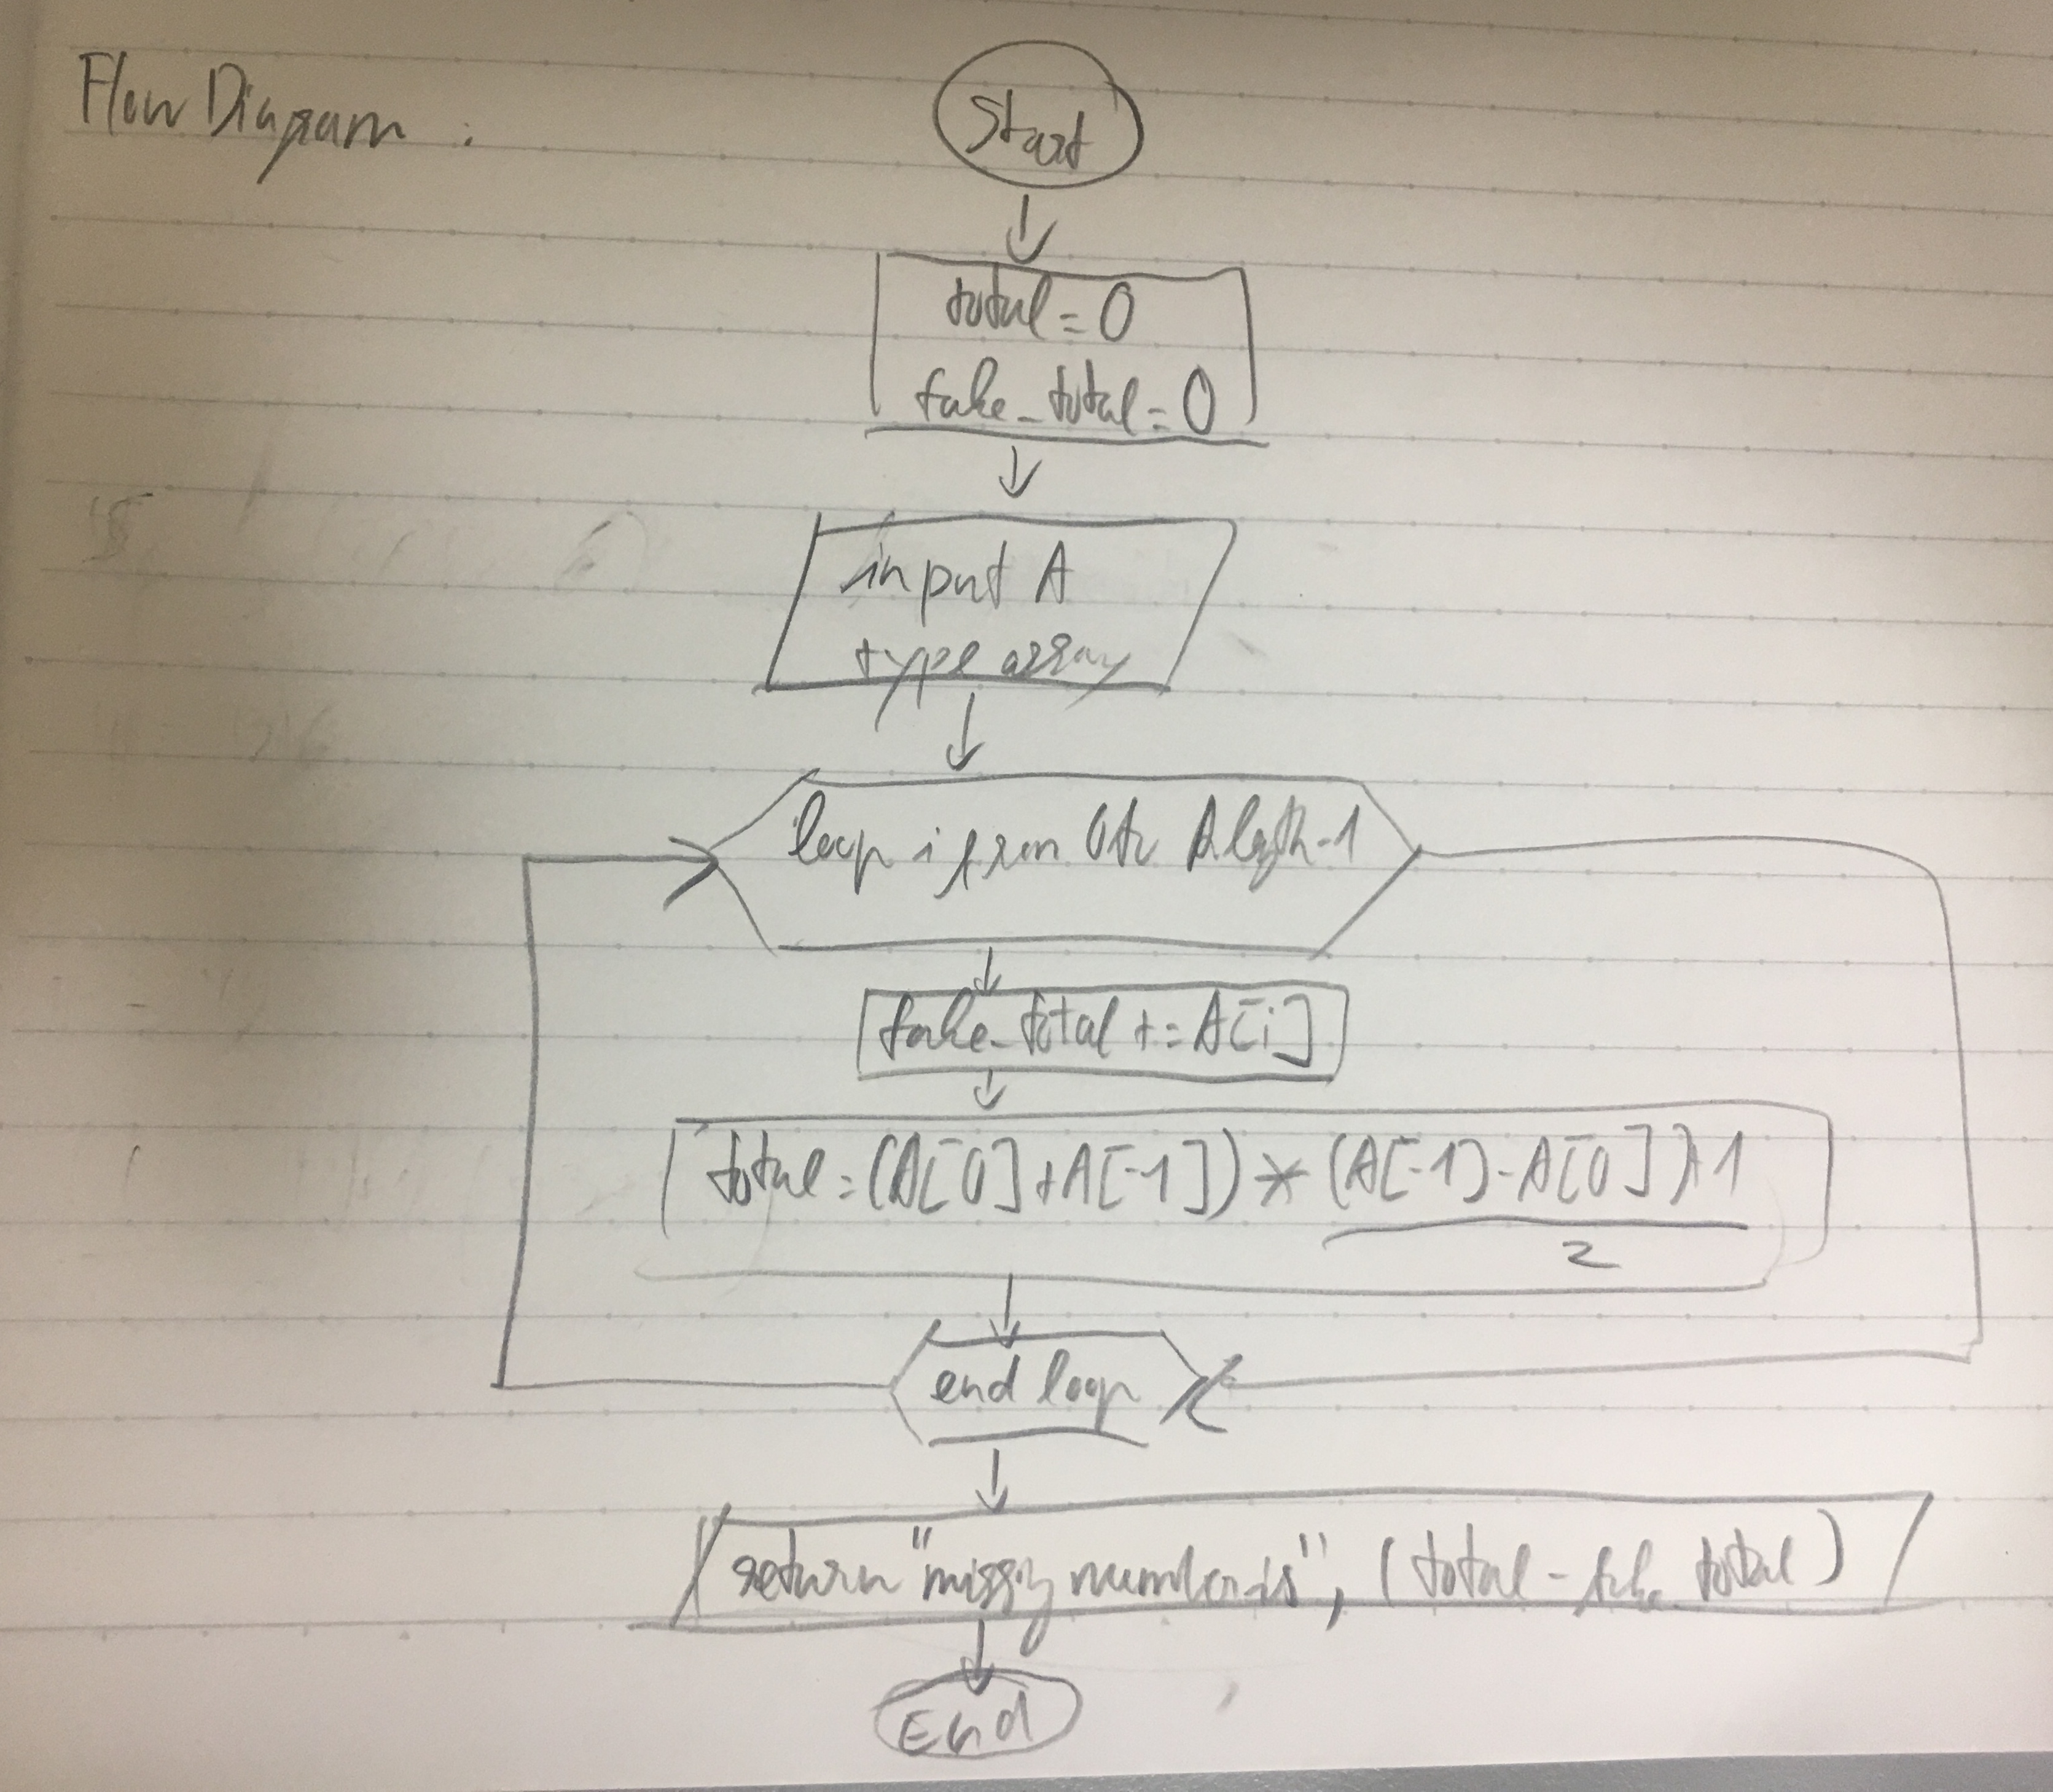 Flow Diagram :
Start
total = 0
fake_total = 0
input A
type array
loop i from 0 to A.length-1
fake_total += A[i]
total = (A[0]+A[-1]) * (A[-1]-A[0])+1
2
end loop
return "missing number is", (total - fake_total)
End